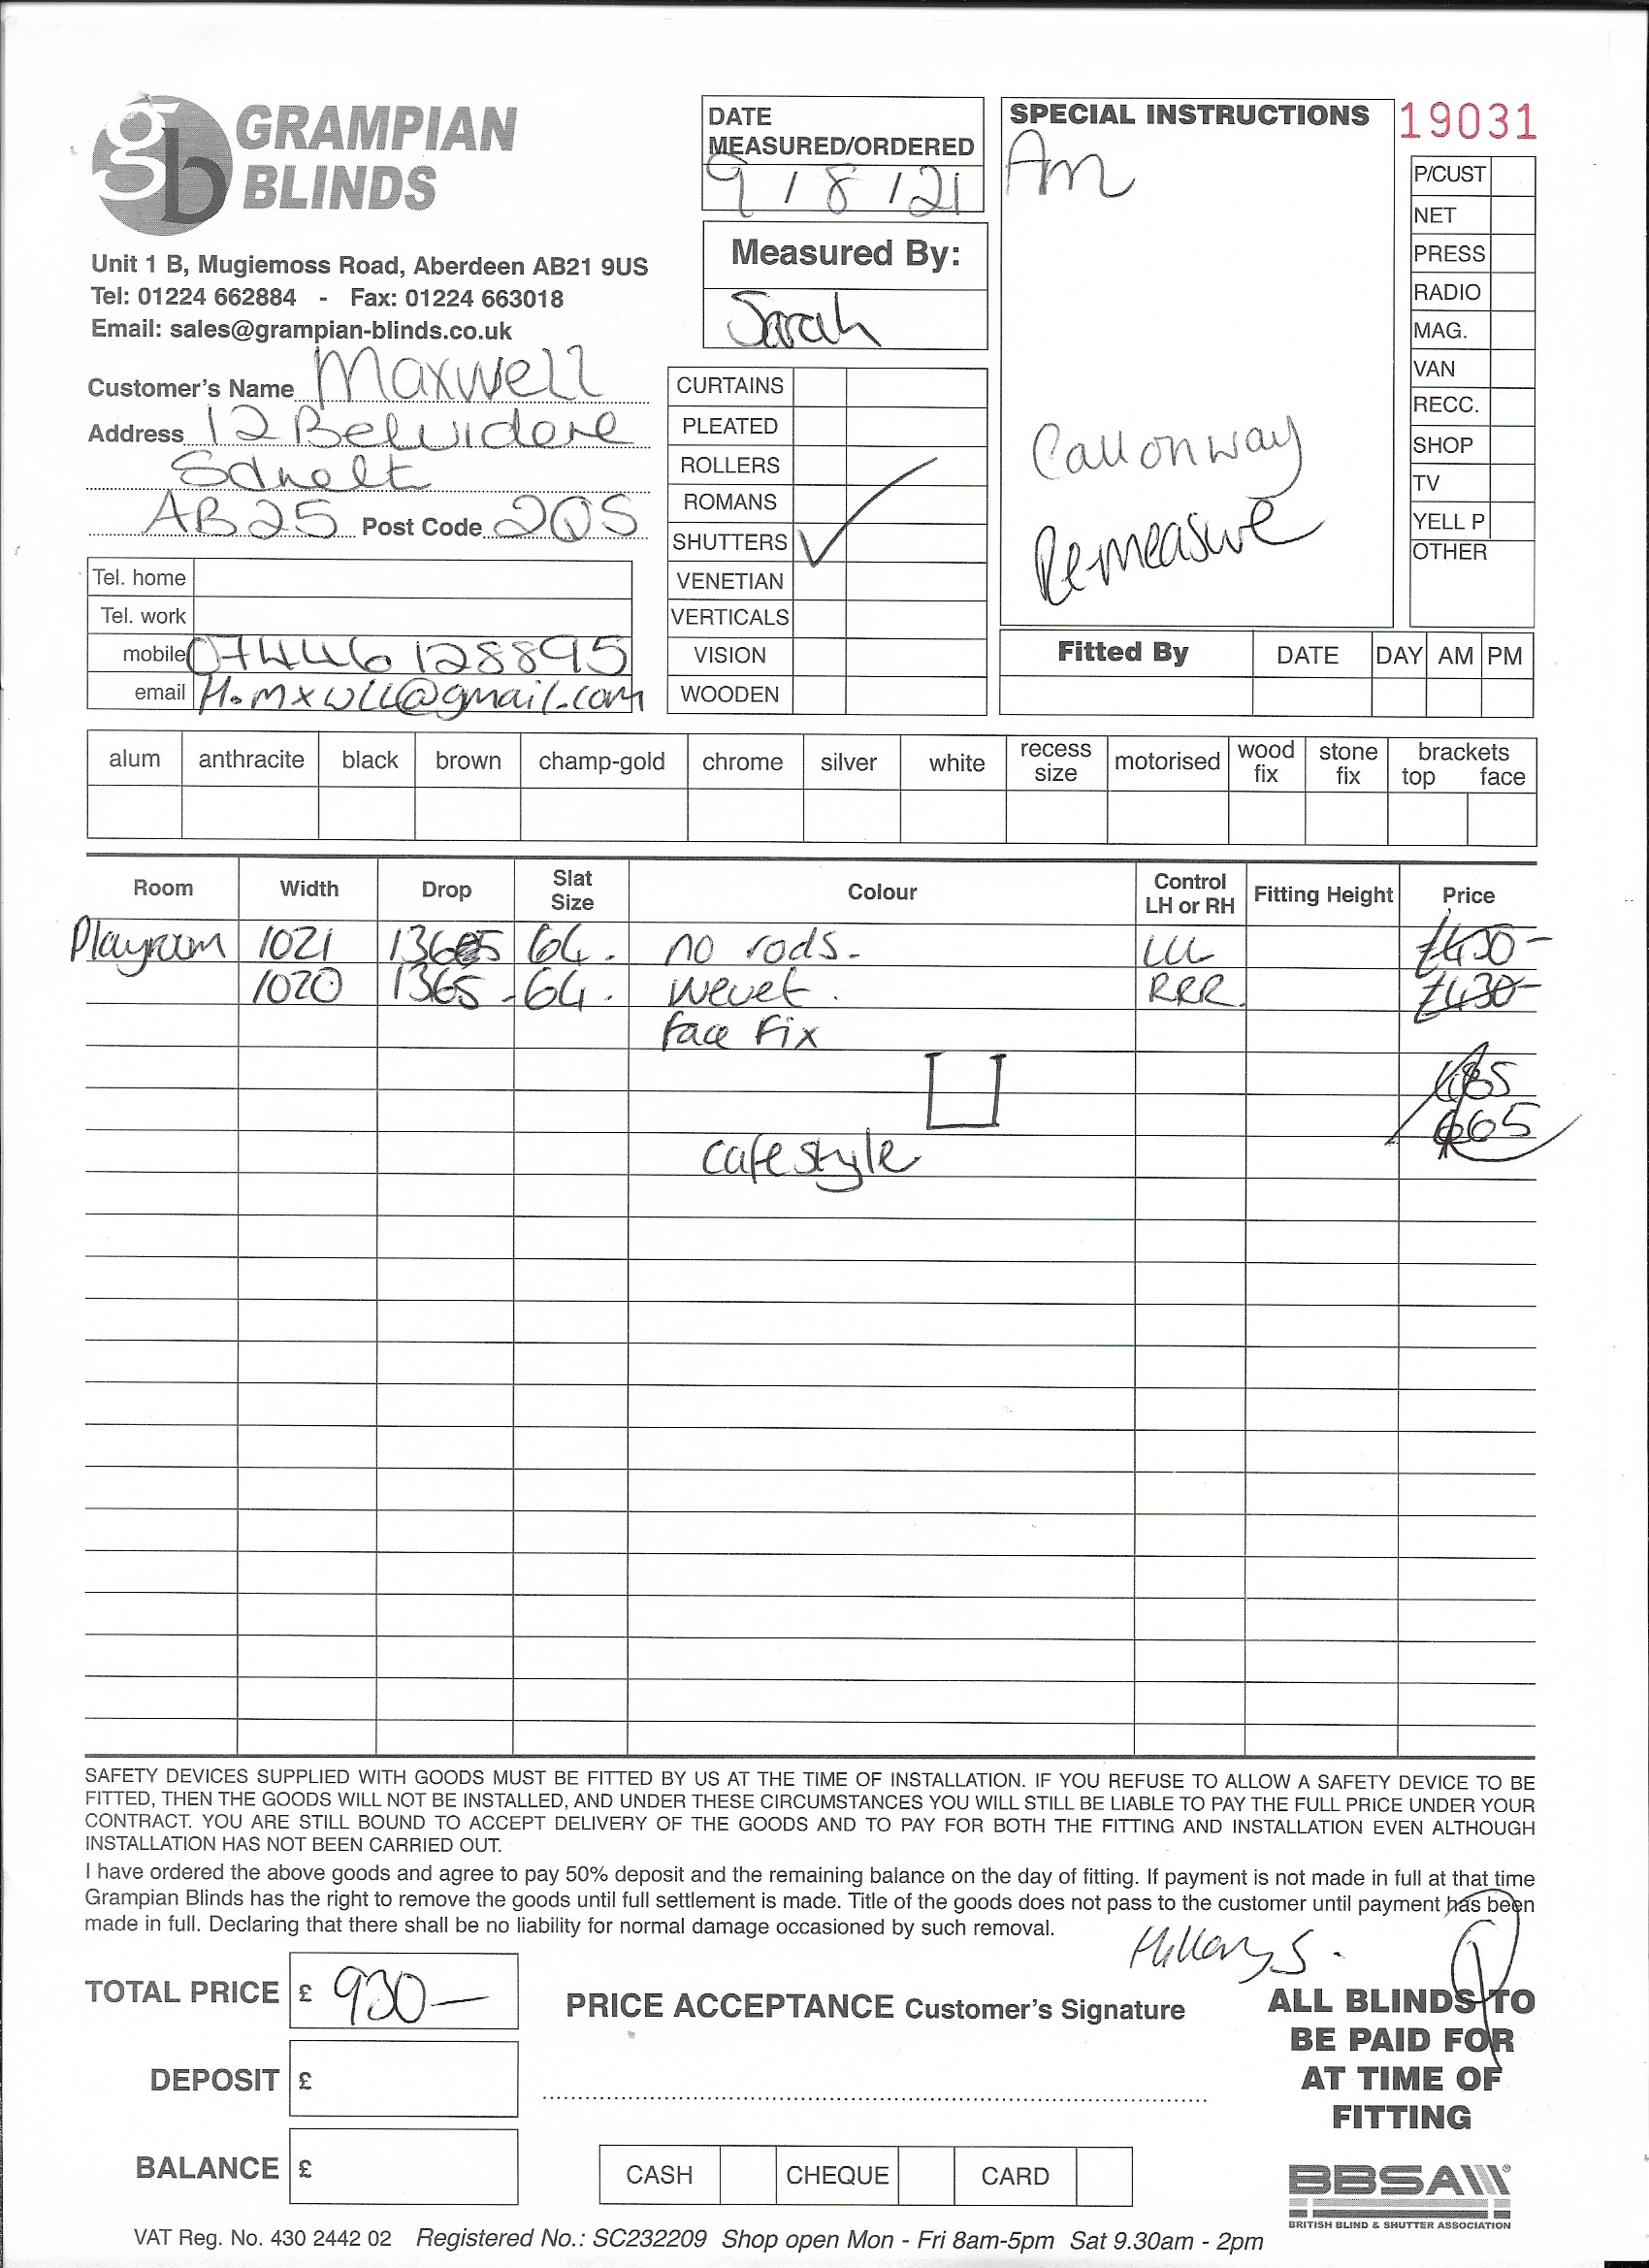 GRAMPIAN
BLINDS
Unit 1 B, Mugiemoss Road, Aberdeen AB21 9US
Tel: 01224 662884 - Fax: 01224 663018
Email: sales@grampian-blinds.co.uk
Customer's Name Maxwell
Address 12 Belvidere
AB25 Post Code 2QS
Tel. home
Tel. work
mobile 07446128895
email H.mxwll@gmail.com
DATE
MEASURED/ORDERED
9 / 8 / 21
Measured By:
Sarah
CURTAINS
PLEATED
ROLLERS
ROMANS
SHUTTERS ✓
VENETIAN
VERTICALS
VISION
WOODEN
SPECIAL INSTRUCTIONS
Am
Call on way
Remeasure
19031
P/CUST
NET
PRESS
RADIO
MAG.
VAN
RECC.
SHOP
TV
YELL P
OTHER
Fitted By DATE DAY AM PM
alum anthracite black brown champ-gold chrome silver white recess size motorised wood fix stone fix brackets top face
Room Width Drop Slat Size Colour Control LH or RH Fitting Height Price
Playroom 1021 1365 64. no rods. LLL £430-
1020 1365 - 64. wevet. RRR. £430-
face fix
cafe style
665
SAFETY DEVICES SUPPLIED WITH GOODS MUST BE FITTED BY US AT THE TIME OF INSTALLATION. IF YOU REFUSE TO ALLOW A SAFETY DEVICE TO BE
FITTED, THEN THE GOODS WILL NOT BE INSTALLED, AND UNDER THESE CIRCUMSTANCES YOU WILL STILL BE LIABLE TO PAY THE FULL PRICE UNDER YOUR
CONTRACT. YOU ARE STILL BOUND TO ACCEPT DELIVERY OF THE GOODS AND TO PAY FOR BOTH THE FITTING AND INSTALLATION EVEN ALTHOUGH
INSTALLATION HAS NOT BEEN CARRIED OUT.
I have ordered the above goods and agree to pay 50% deposit and the remaining balance on the day of fitting. If payment is not made in full at that time
Grampian Blinds has the right to remove the goods until full settlement is made. Title of the goods does not pass to the customer until payment has been
made in full. Declaring that there shall be no liability for normal damage occasioned by such removal.
TOTAL PRICE £ 930-
DEPOSIT £
BALANCE £
PRICE ACCEPTANCE Customer's Signature
CASH CHEQUE CARD
ALL BLINDS TO
BE PAID FOR
AT TIME OF
FITTING
BBSA
BRITISH BLIND & SHUTTER ASSOCIATION
VAT Reg. No. 430 2442 02 Registered No.: SC232209 Shop open Mon - Fri 8am-5pm Sat 9.30am - 2pm